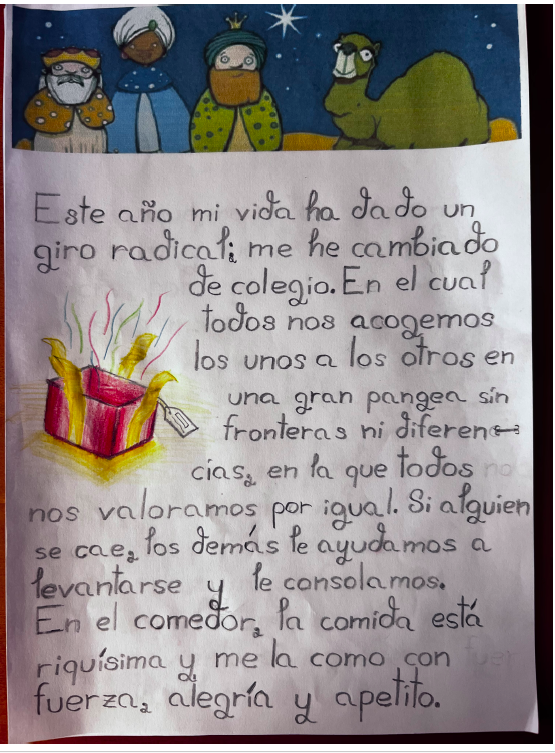 Este año mi vida ha dado un
giro radical; me he cambiado
de colegio. En el cual
todos nos acogemos
los unos a los otros en
una gran pangea sin
fronteras ni diferen-
cias, en la que todos
nos valoramos por igual. Si alguien
se cae, los demás le ayudamos a
levantarse y le consolamos.
En el comedor, la comida está
riquísima y me la como con
fuerza, alegría y apetito.